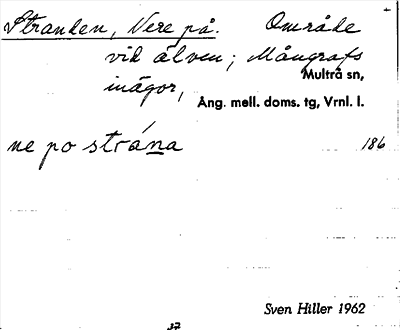 Stranden, Nere på. Område
vid älven; Mångrafs
inägor,
Multrå sn,
Ång. mell. doms. tg, Vrnl. l.
ne po strána
186
Sven Hiller 1962
37